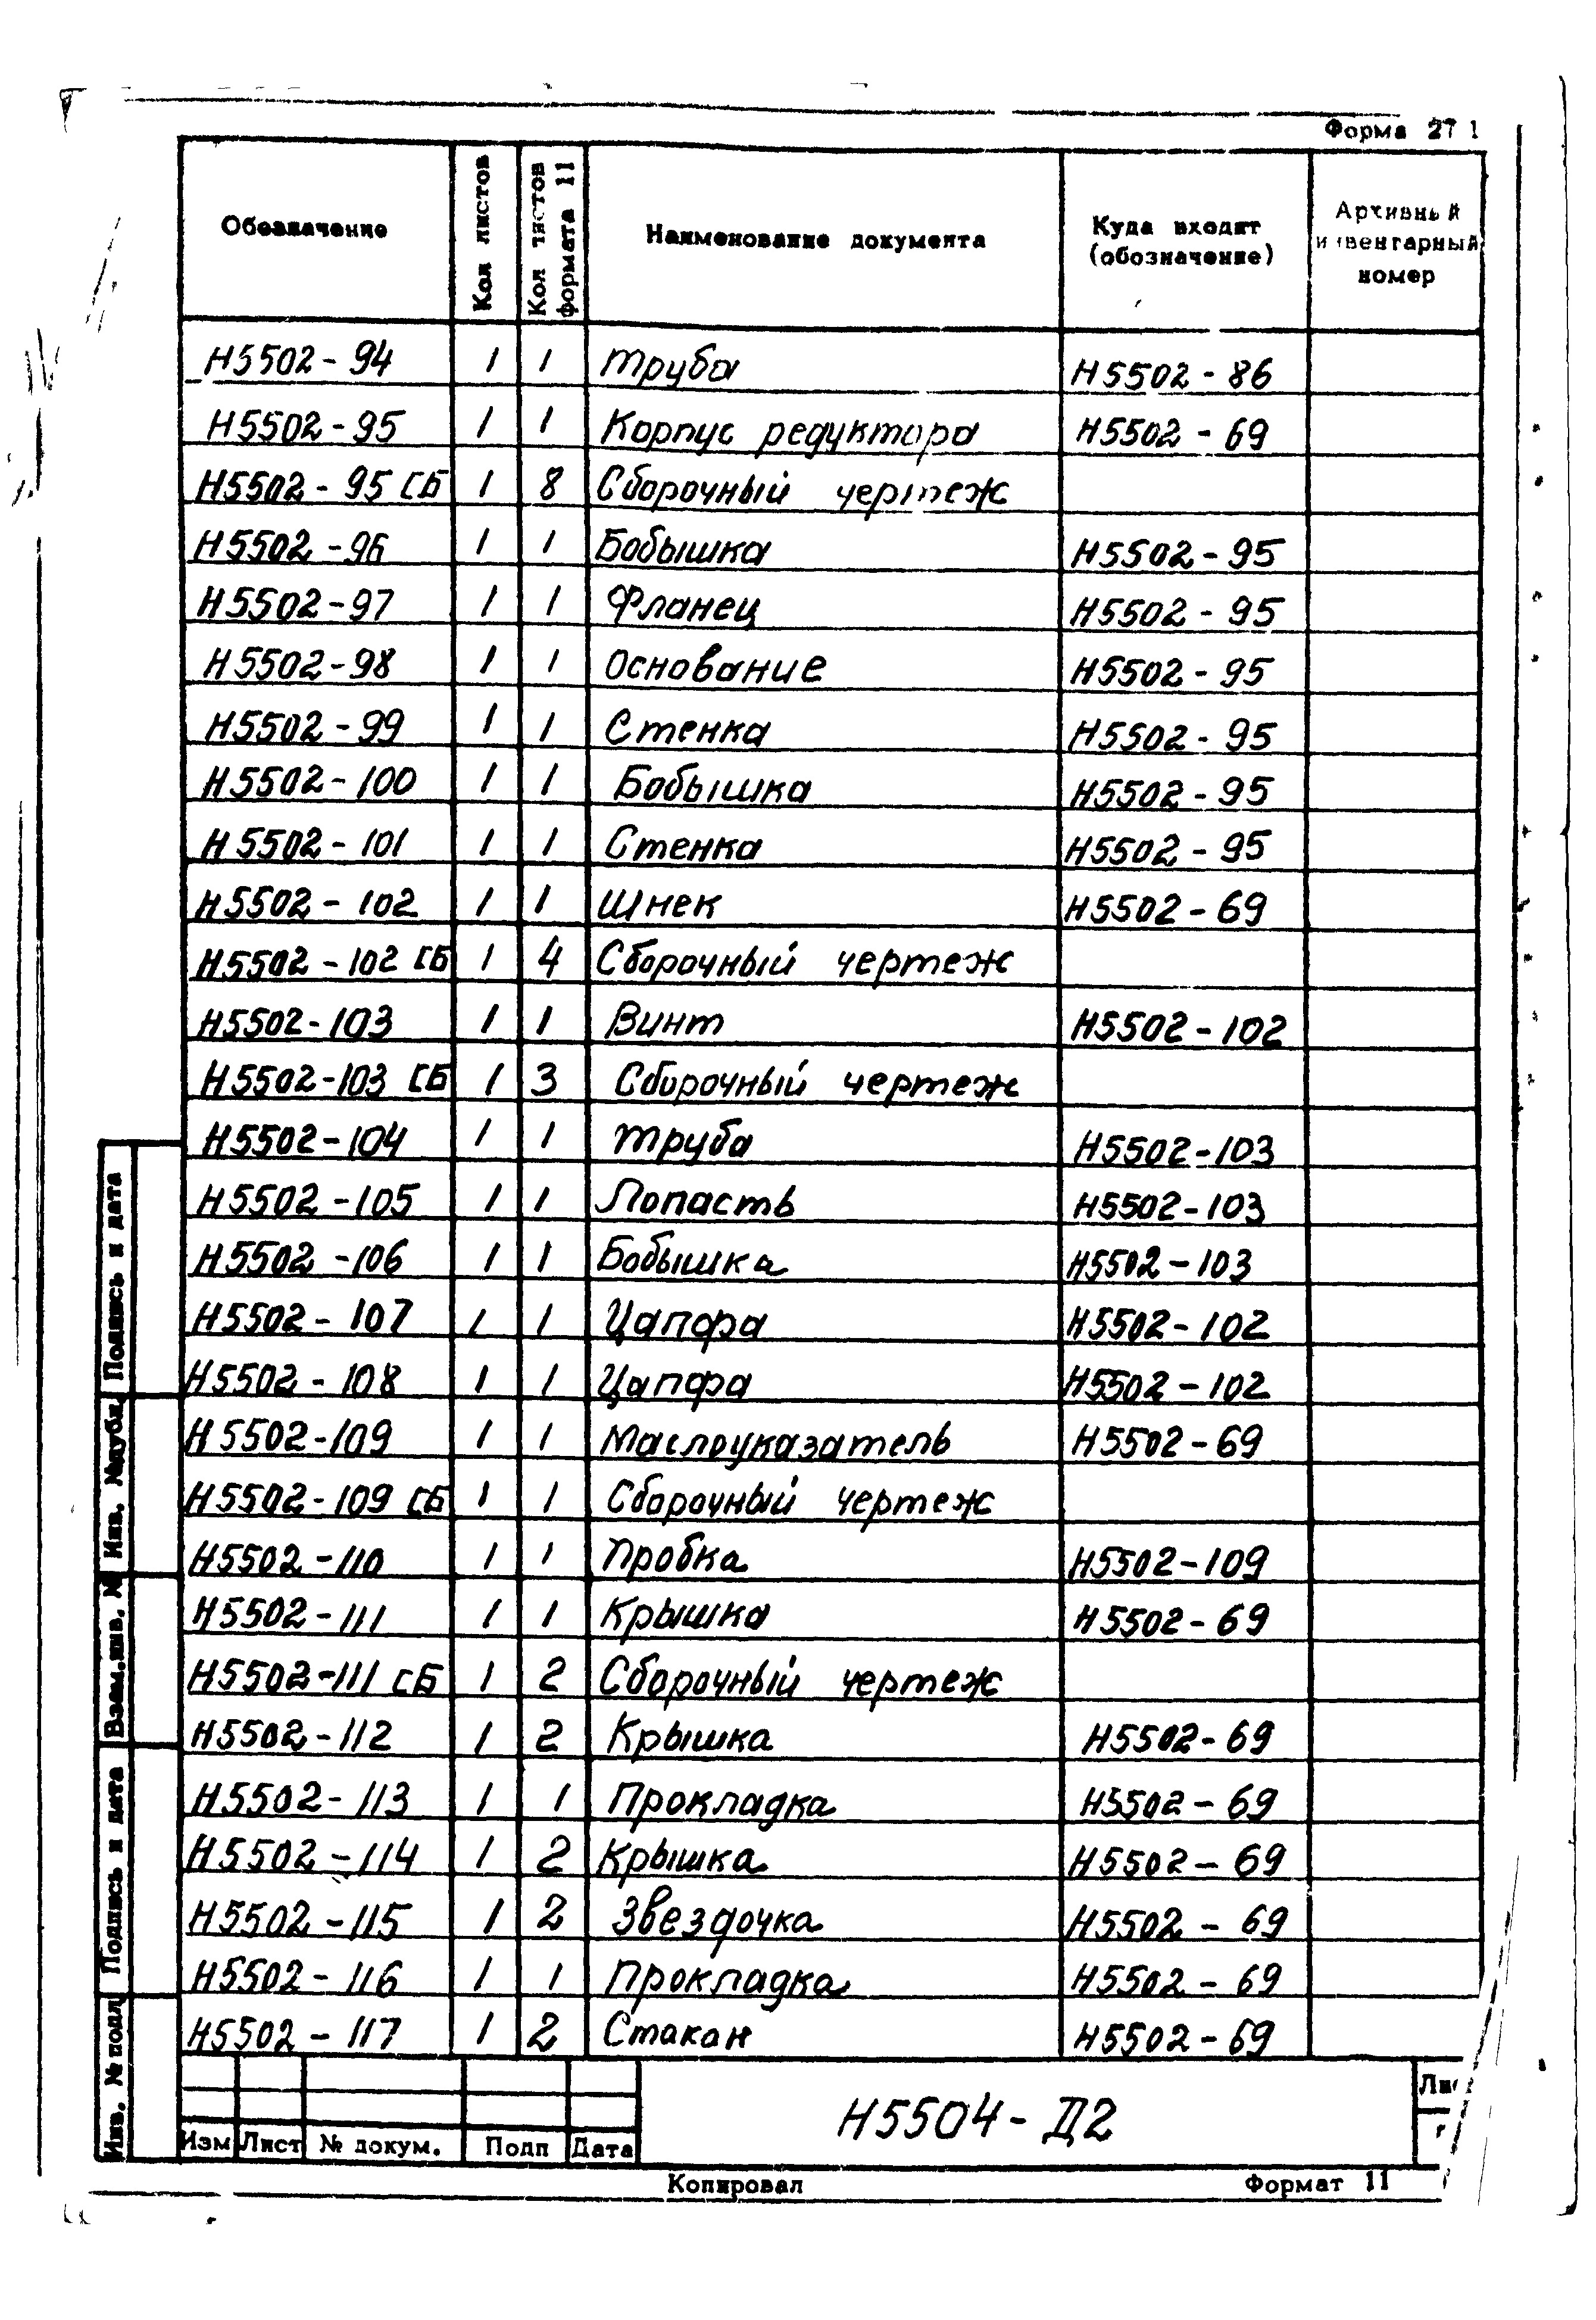 Форма 27 1
Обозначение Кол листов Кол листов формата 11 Наименование документа Куда входит (обозначение) Архивный инвентарный номер
Н5502-94 1 1 Труба Н5502-86
Н5502-95 1 1 Корпус редуктора Н5502-69
Н5502-95 СБ 1 8 Сборочный чертеж
Н5502-96 1 1 Бобышка Н5502-95
Н5502-97 1 1 Фланец Н5502-95
Н5502-98 1 1 Основание Н5502-95
Н5502-99 1 1 Стенка Н5502-95
Н5502-100 1 1 Бобышка Н5502-95
Н5502-101 1 1 Стенка Н5502-95
Н5502-102 1 1 Шнек Н5502-69
Н5502-102 СБ 1 4 Сборочный чертеж
Н5502-103 1 1 Винт Н5502-102
Н5502-103 СБ 1 3 Сборочный чертеж
Н5502-104 1 1 Труба Н5502-103
Н5502-105 1 1 Лопасть Н5502-103
Н5502-106 1 1 Бобышка Н5502-103
Н5502-107 1 1 Цапфа Н5502-102
Н5502-108 1 1 Цапфа Н5502-102
Н5502-109 1 1 Маслоуказатель Н5502-69
Н5502-109 СБ 1 1 Сборочный чертеж
Н5502-110 1 1 Пробка Н5502-109
Н5502-111 1 1 Крышка Н5502-69
Н5502-111 СБ 1 2 Сборочный чертеж
Н5502-112 1 2 Крышка Н5502-69
Н5502-113 1 1 Прокладка Н5502-69
Н5502-114 1 2 Крышка Н5502-69
Н5502-115 1 2 Звездочка Н5502-69
Н5502-116 1 1 Прокладка Н5502-69
Н5502-117 1 2 Стакан Н5502-69
Подпись и дата
Инв. № дубл.
Взам.инв. №
Подпись и дата
Инв. № подл
Изм Лист № докум. Подп Дата
Н5504-Д2
Копировал Формат 11